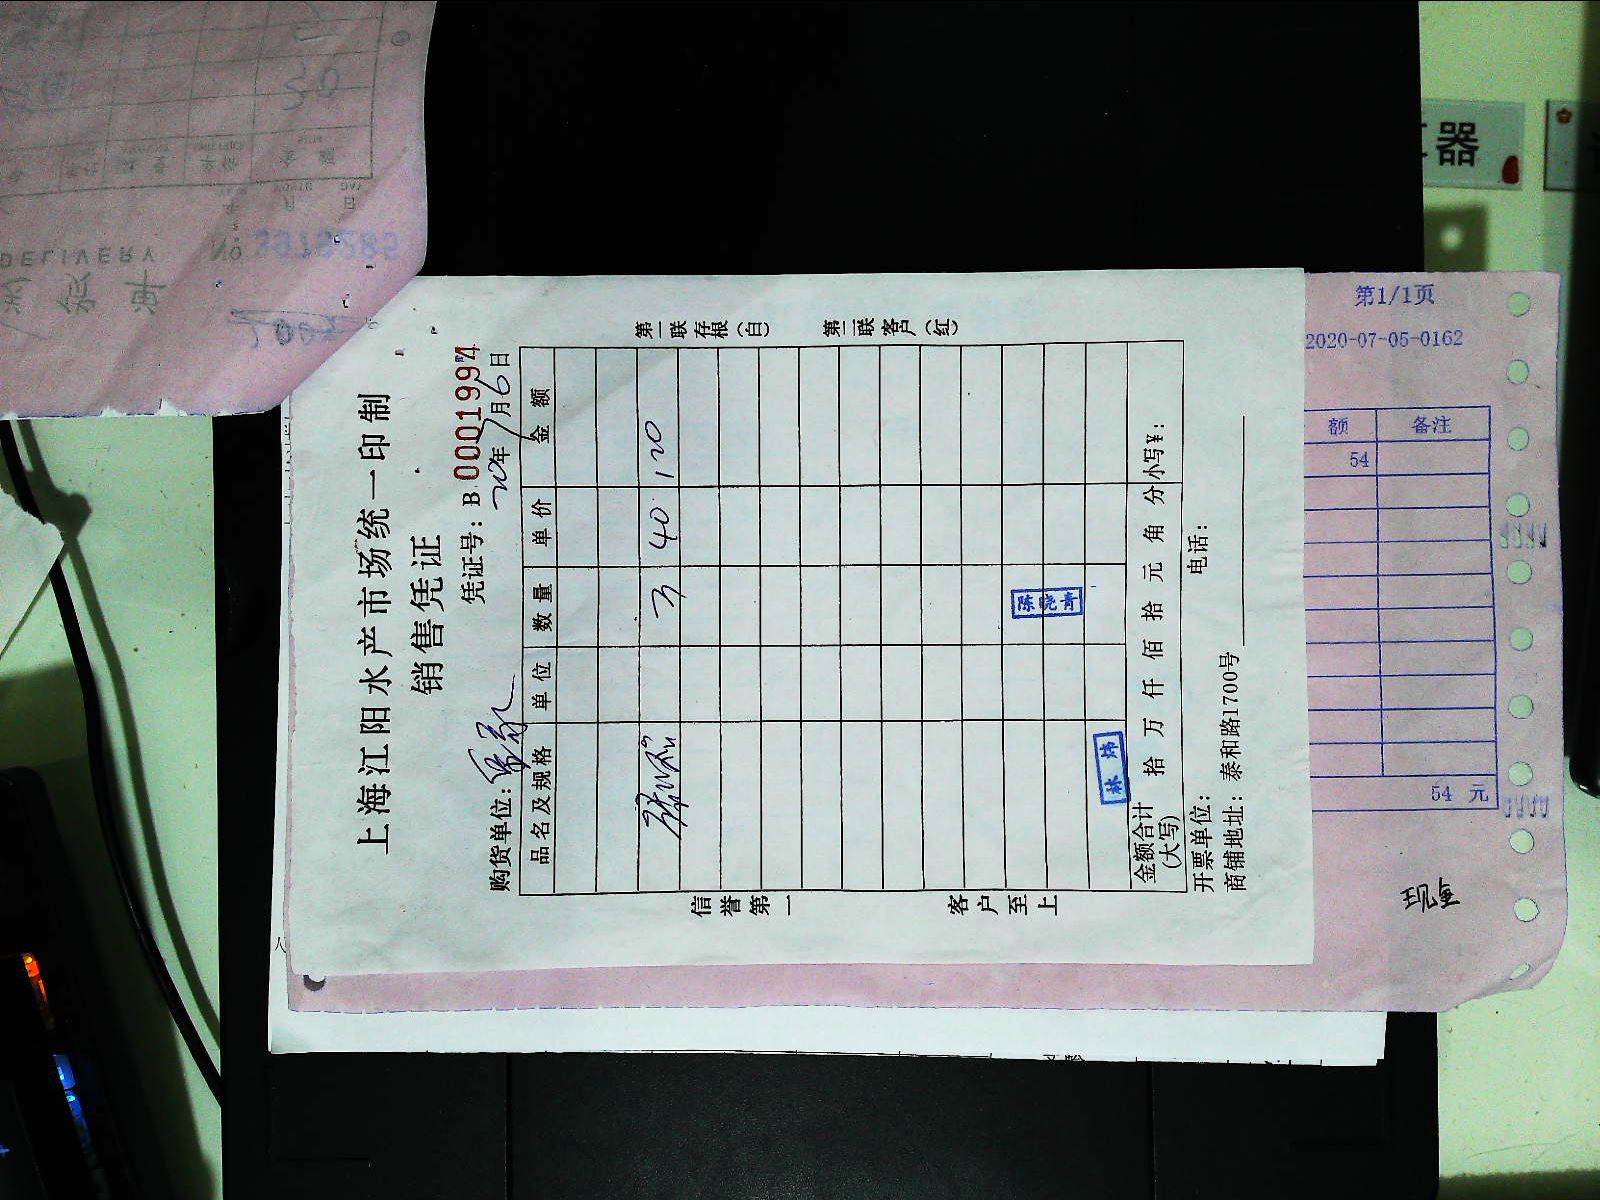 上海江阳水产市场统一印制
销售凭证
凭证号：B 0001994
购货单位：
20年7月6日
品名及规格 单位 数量 单价 金额
3 40 120
陈晓青
林炜
金额合计(大写) 拾 万 仟 佰 拾 元 角 分 小写¥：
开票单位： 电话：
商铺地址：泰和路1700号
信誉第一 客户至上
第一联存根（白） 第二联客户（红）
第1/1页
2020-07-05-0162
额 备注
54
54 元
现金
器
DELIVERY
No 3979285